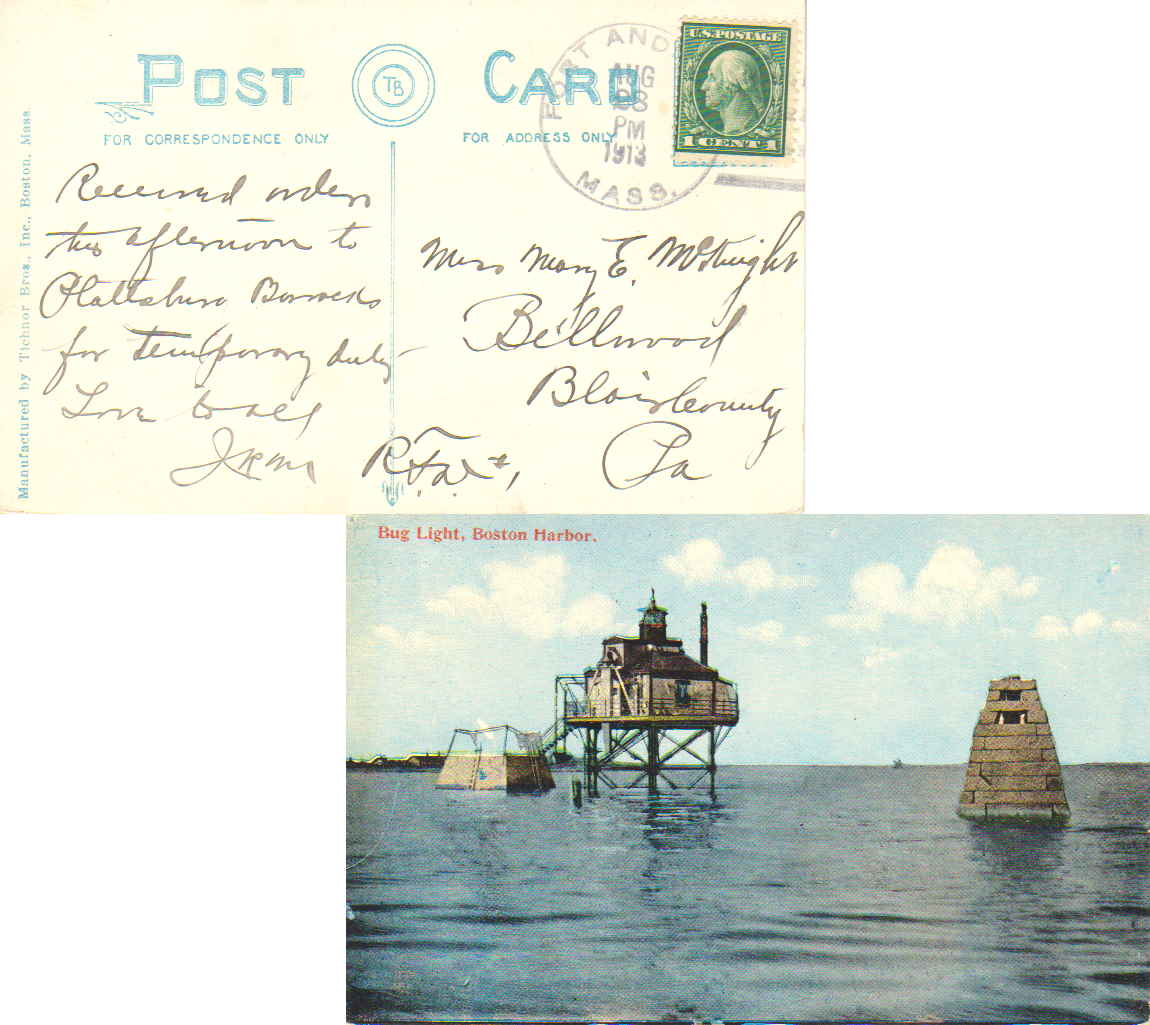 POST CARD
TB
FOR CORRESPONDENCE ONLY
FOR ADDRESS ONLY
FORT AND
AUG
28
PM
1913
MASS.
U.S. POSTAGE
1 CENT 1
Manufactured by Tichnor Bros., Inc., Boston, Mass.
Received orders
this afternoon to
Plattsburg Barracks
for temporary duty
Love to all
Miss Mary E. McKnight
Bellwood
Blair County
Pa
Bug Light, Boston Harbor.